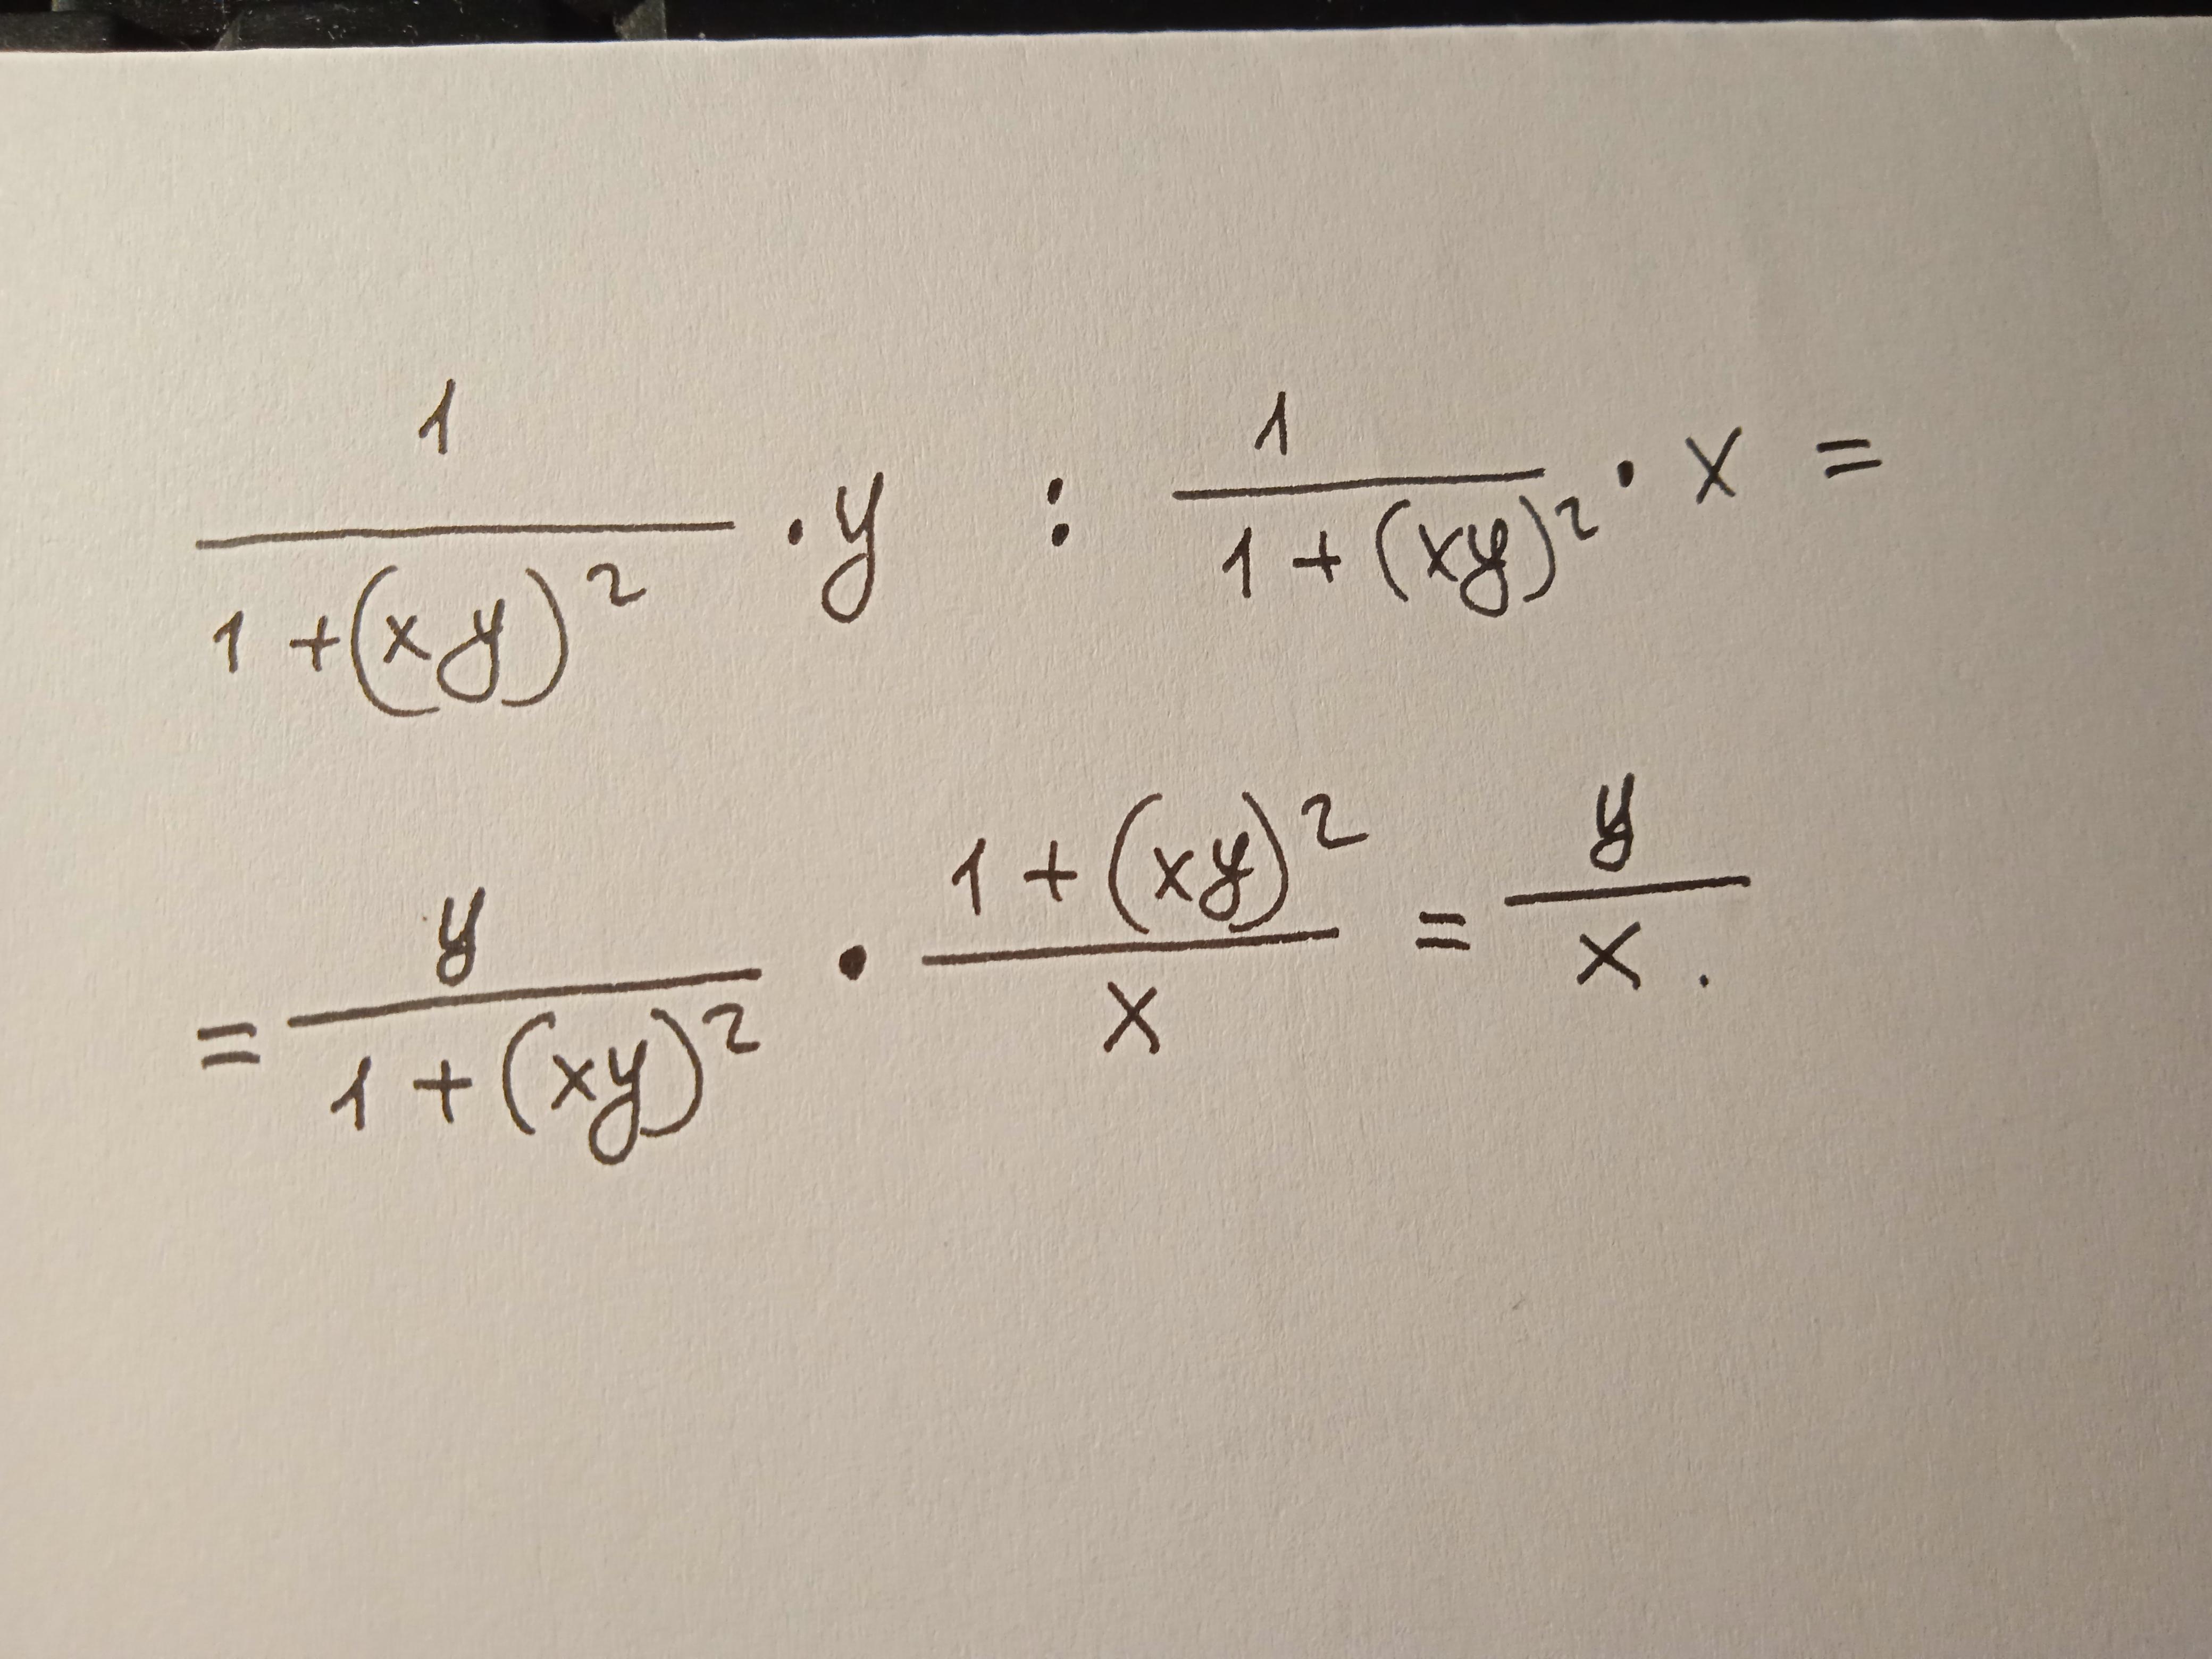 1/(1+(xy)²) · y : 1/(1+(xy)²) · x =
= y/(1+(xy)²) · (1+(xy)²)/x = y/x .